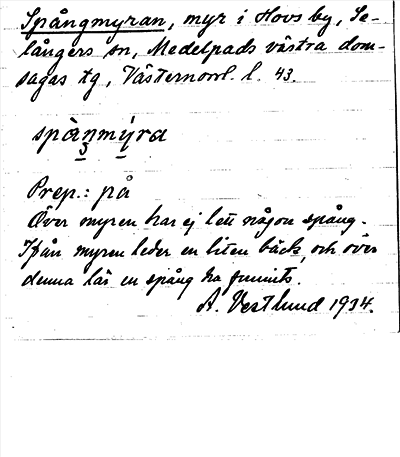 Spångmyran, myr i Hovs by, Se-
långers sn, Medelpads västra dom-
sagas tg, Västernorrl. l. 43.
spàŋmýra
3
Prep.: på
Över myren har ej lett någon spång.
Ifrån myren leder en liten bäck, och över
denna lär en spång ha funnits.
A. Vestlund 1934.